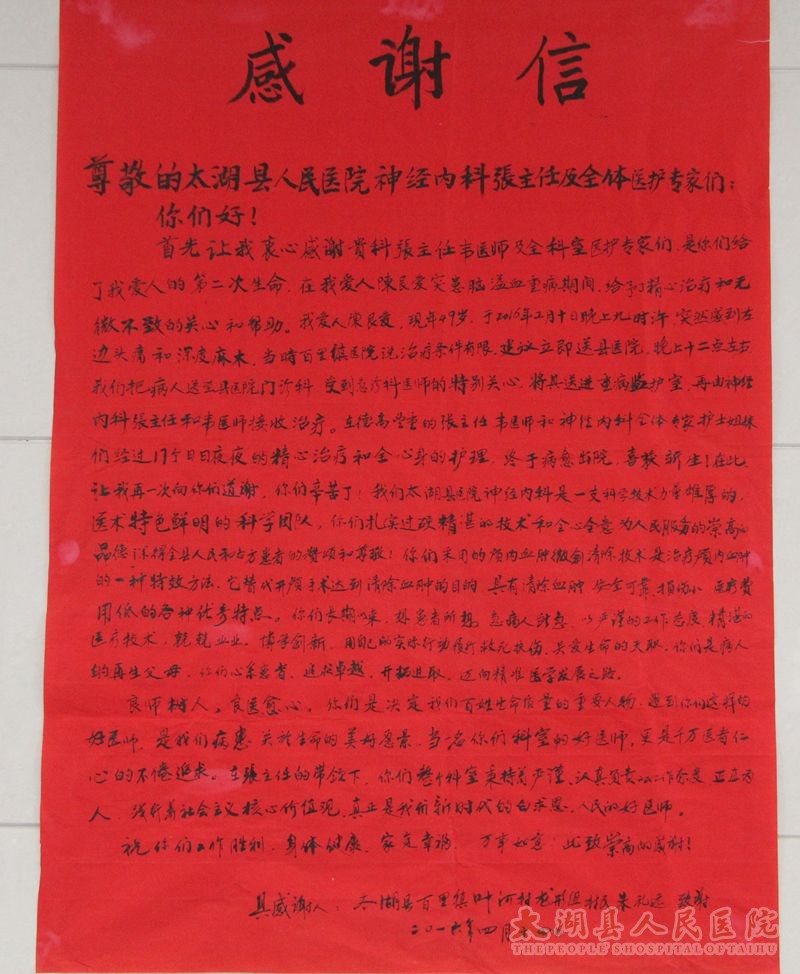 感谢信
尊敬的太湖县人民医院神经内科張主任及全体医护专家们：
你们好！
首先让我衷心感谢贵科張主任韦医师及全科室医护专家们，是你们给
了我爱人的第二次生命，在我爱人陳民爱突患脑溢血重病期间，给予了精心治疗和无
微不致的关心和帮助。我爱人陳民爱，现年49岁，于2016年2月十日晚上九时许，突然感到左
边头痛和深度麻木，当時百里镇医院说治疗条件有限，建议立即送县医院，晚上十二点左右
我们把病人送至县医院门诊科，受到急诊科医师的特别关心，将其送进重病监护室，再由神经
内科張主任和韦医师接收治疗。在德高望重的张主任韦医师和神经内科全体专家护士姐妹
们经过17个日日夜夜的精心治疗和全心身的护理，终于病愈出院，喜获新生！在此，
让我再一次向你们道谢，你们辛苦了！我们太湖县医院神经内科是一支科学技术力量雄厚的，
医术特色鲜明的科学团队，你们扎实过硬精湛的技术和全心全意为人民服务的崇高的
品德深得全县人民和各方患者的赞颂和尊敬！你们采用的颅内血肿微创清除技术是治疗颅内血肿
的一种特效方法，它替代开颅手术达到清除血肿的目的，具有清除血肿，安全可靠，损伤小，医疗费
用低的各种优秀特点。你们长期以来，想患者所想，急病人所急，以严谨的工作态度，精湛的
医疗技术，兢兢业业，博学创新，用自己的实际行动履行救死扶伤，关爱生命的天职，你们是病人
的再生父母，你们心系患者，追求卓越，开拓进取，迈向精准医学发展之路。
良师树人，良医愈心。你们是决定我们百姓生命质量的重要人物，遇到你们这样的
好医师，是我们病患关于生命的美好愿景，当一名你们科室的好医师，更是千万医者仁
心的不倦追求。在張主任的带领下，你们整个科室秉持着严谨、认真负责的工作态度，正直为
人，践行着社会主义核心价值观，真正是我们新时代的白求恩，人民的好医师。
祝你们工作胜利，身体健康，家庭幸福，万事如意，此致崇高的敬谢！
具感谢人：太湖县百里镇叶河村龙形组村民朱礼远 致谢
二〇一六年四月
太湖县人民医院
THE PEOPLE'S HOSPITAL OF TAIHU